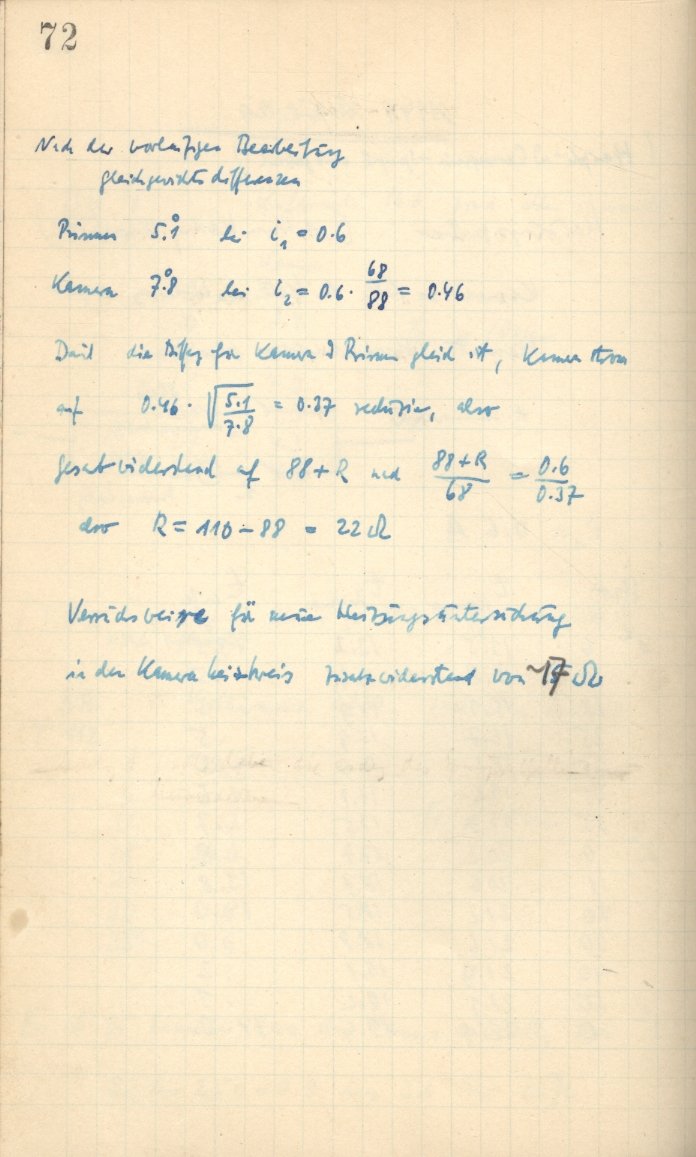 72
Nach der vorläufigen Bearbeitung
Gleichgewichtsdifferenzen
Prismen 5.°1 bei i₁ = 0.6
Kamera 7.°8 bei i₂ = 0.6 · 68/88 = 0.46
Damit die Diff für Kamera & Prismen gleich ist, Kamerastrom
auf 0.46 · √(5.1/7.8) = 0.37 reduzier, also
Gesamtwiderstand auf 88+R und (88+R)/68 = 0.6/0.37
also R = 110 - 88 = 22 Ω
Versuchsweise für neue Heizungsuntersuchung
in den Kameraheizkreis Zusatzwiderstand von ~17 Ω